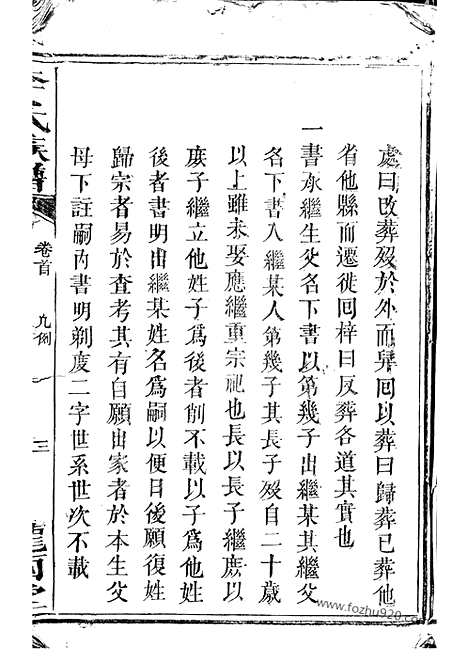 處曰改葬歿於外而舁回以葬曰歸葬已葬他
省他縣而遷徙回梓曰反葬各道其實也
一書承繼生父名下書以第幾子出繼某其繼父
名下書入繼某人第幾子其長子歿自二十歲
以上雖未娶應繼重宗祀也長以長子繼庶以
庶子繼立他姓子爲後者削不載以子爲他姓
後者書明出繼某姓名爲嗣以便日後願復姓
歸宗者易於查考其有自願出家者於本生父
母下註嗣內書明剃度二字世系世次不載
李氏族譜
卷首
凡例
三
隴西堂
www.fozhu920.com